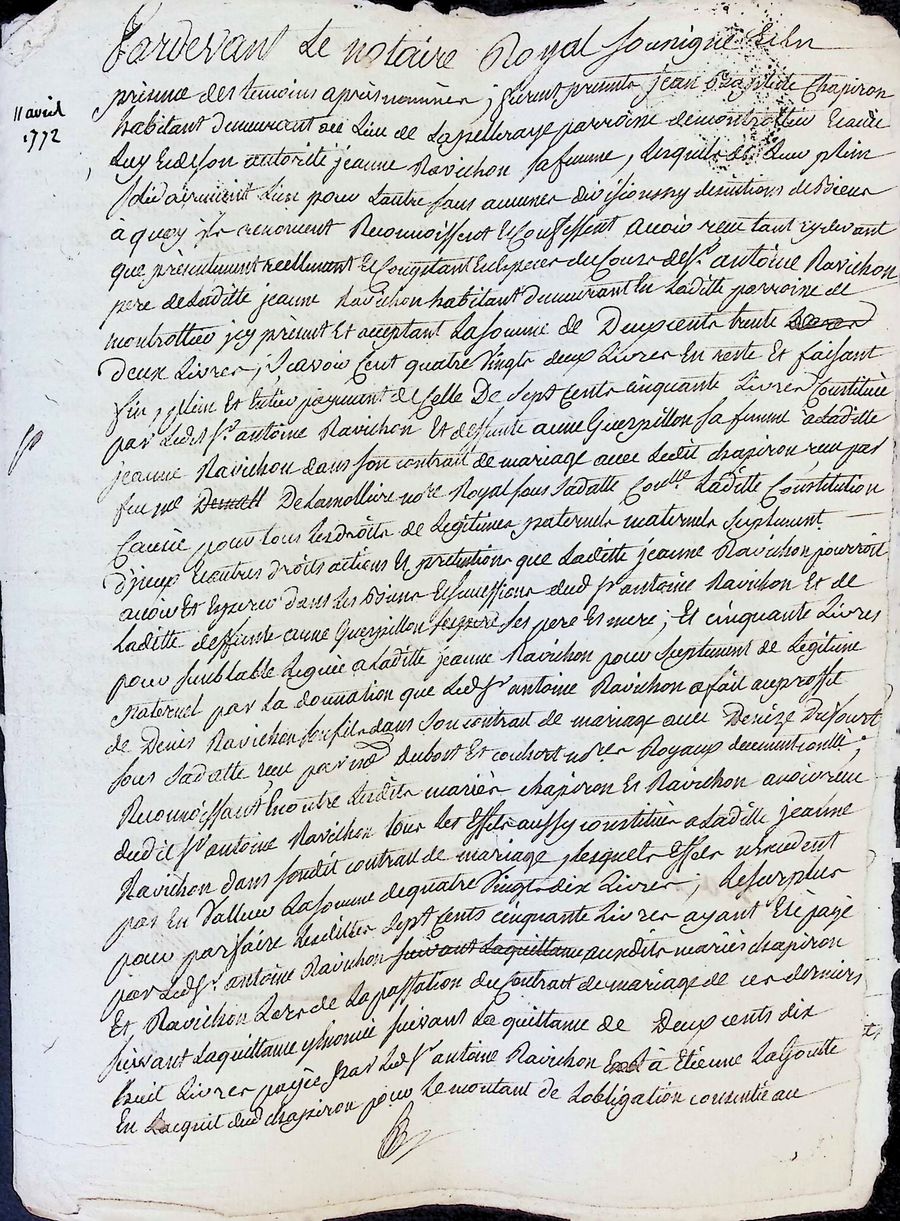 11 avril
1772
Pardevant Le notaire Royal soussigné Et En
présence des temoins après nommés ; furent présents jean Baptiste Chapiron
habitant demeurant au Lieu de Lapelleraye parroisse de montrottier Et avec
Luy Et de son autorité jeanne Ravichon sa femme, Lesquels de Leur plein
solidairement L'un pour L'autre sans aucunes divisions ny de biens
à quoy ils renoncent Reconnoissent et Confessent avoir reçu tant cydevant
que présentement reellement Et Comptant En Especes du Cours de Sr. antoine Ravichon
pere de Laditte jeanne Ravichon habitant demeurant En Laditte parroisse de
montrottier jcy présent Et acceptant La somme de Deux cents trente
deux Livres ; Sçavoir Cent quatre Vingts deux Livres En reste Et faisant
fin, plein Et Entier payement de Celle De Sept Cents cinquante Livres Constituée
par Ledit Sr. antoine Ravichon Et deffunte anne Guerpillon sa femme a Laditte
jeanne Ravichon dans son contrat de mariage avec Ledit chapiron reçu par
feu me De Lamolliere nore Royal sous sa datte Conllé Laditte Constitution
Causée pour tous Les droits de Legitimes paternels maternels Suplement
d'jceux Et autres droits actions Et prétentions que Laditte jeanne Ravichon pourroit
avoir Et Esperer dans Les biens Et successions dud Sr antoine Ravichon Et de
Laditte deffunte anne Guerpillon ses pere Et mere ; Et cinquante Livres
pour semblable Leguée a Laditte jeanne Ravichon pour Suplement de Legitime
paternel par La donnation que Led Sr antoine Ravichon a fait au proffit
de Denis Ravichon son fils dans son contrat de mariage avec Denize Dufourt
sous sa datte reçu par Dubost Et couhort nores Royaux decemment conllé ;
Reconnoissant En outre Lesdits mariés chapiron Et Ravichon avoir reçu
dudit Sr. antoine Ravichon tous Les Effets aussy constitués a Laditte jeanne
Ravichon dans sondit contrat de mariage, Lesquels Effets n'excedent
pas En Valleur La somme de quatre Vingts dix Livres ; Le surplus
pour parfaire Lesdittes Sept Cents cinquante Livres ayant Eté payé
par Led Sr. antoine Ravichon suivant Laquittance auxdits mariés chapiron
Et Ravichon Lors de La passation du Contrat de mariage de ces derniers
suivant Laquittance suivant La quittance de Deux cents dix
huit Livres payée par Led Sr antoine Ravichon à Etienne La Goutte
En L'acquit dud chapiron pour Le montant de L'obligation consentie au